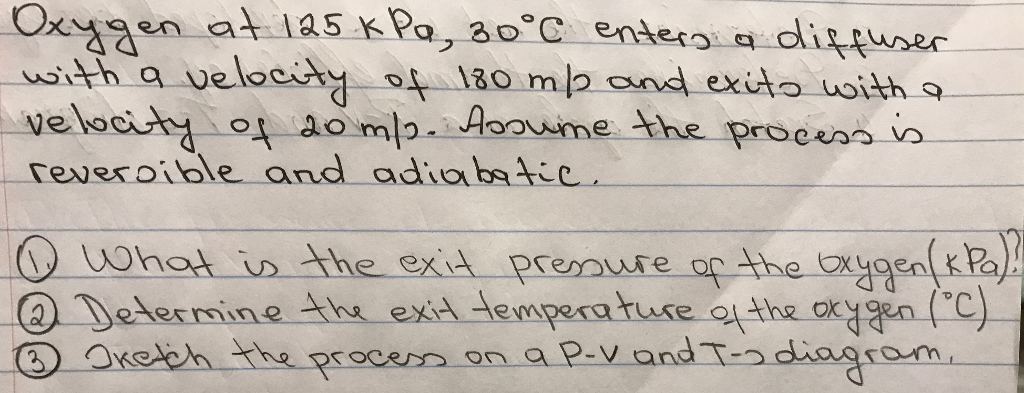 Oxygen at 125 kPa, 30°C enters a diffuser
with a velocity of 180 m/s and exits with a
velocity of 20 m/s. Assume the process is
reversible and adiabatic.
① What is the exit pressure of the oxygen (kPa)?
② Determine the exit temperature of the oxygen (°C)
③ Sketch the process on a P-v and T-s diagram.